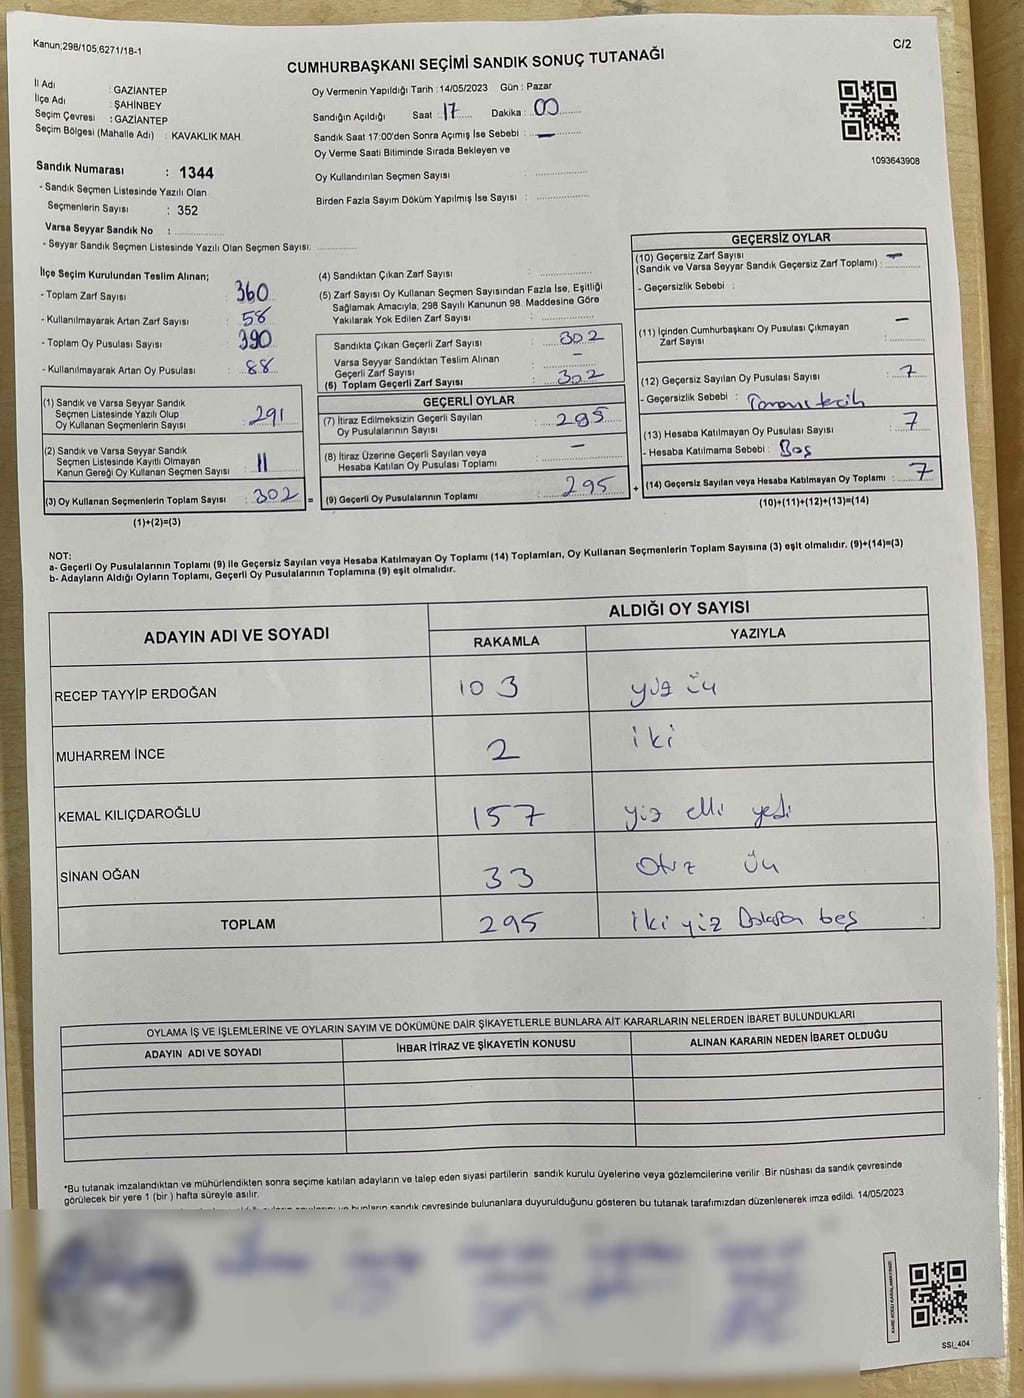 Kanun;298/105;6271/18-1
C/2
CUMHURBAŞKANI SEÇİMİ SANDIK SONUÇ TUTANAĞI
İl Adı : GAZİANTEP
İlçe Adı : ŞAHİNBEY
Seçim Çevresi : GAZİANTEP
Seçim Bölgesi (Mahalle Adı) : KAVAKLIK MAH.
Sandık Numarası : 1344
- Sandık Seçmen Listesinde Yazılı Olan
Seçmenlerin Sayısı : 352
Varsa Seyyar Sandık No :
- Seyyar Sandık Seçmen Listesinde Yazılı Olan Seçmen Sayısı:
Oy Vermenin Yapıldığı Tarih : 14/05/2023 Gün : Pazar
Sandığın Açıldığı Saat : 17 Dakika : 00
Sandık Saat 17:00'den Sonra Açımış İse Sebebi : —
Oy Verme Saati Bitiminde Sırada Bekleyen ve
Oy Kullandırılan Seçmen Sayısı :
Birden Fazla Sayım Döküm Yapılmış İse Sayısı :
1093643908
İlçe Seçim Kurulundan Teslim Alınan;
- Toplam Zarf Sayısı : 360
- Kullanılmayarak Artan Zarf Sayısı : 58
- Toplam Oy Pusulası Sayısı : 390
- Kullanılmayarak Artan Oy Pusulası : 88
(1) Sandık ve Varsa Seyyar Sandık
Seçmen Listesinde Yazılı Olup
Oy Kullanan Seçmenlerin Sayısı : 291
(2) Sandık ve Varsa Seyyar Sandık
Seçmen Listesinde Kayıtlı Olmayan
Kanun Gereği Oy Kullanan Seçmen Sayısı : 11
(3) Oy Kullanan Seçmenlerin Toplam Sayısı : 302 =
(1)+(2)=(3)
(4) Sandıktan Çıkan Zarf Sayısı :
(5) Zarf Sayısı Oy Kullanan Seçmen Sayısından Fazla İse, Eşitliği
Sağlamak Amacıyla, 298 Sayılı Kanunun 98. Maddesine Göre
Yakılarak Yok Edilen Zarf Sayısı :
Sandıkta Çıkan Geçerli Zarf Sayısı : 302
Varsa Seyyar Sandıktan Teslim Alınan
Geçerli Zarf Sayısı : —
(6) Toplam Geçerli Zarf Sayısı : 302
GEÇERLİ OYLAR
(7) İtiraz Edilmeksizin Geçerli Sayılan
Oy Pusulalarının Sayısı : 295
(8) İtiraz Üzerine Geçerli Sayılan veya
Hesaba Katılan Oy Pusulası Toplamı : —
(9) Geçerli Oy Pusulalarının Toplamı : 295 +
GEÇERSİZ OYLAR
(10) Geçersiz Zarf Sayısı
(Sandık ve Varsa Seyyar Sandık Geçersiz Zarf Toplamı) : —
- Geçersizlik Sebebi :
(11) İçinden Cumhurbaşkanı Oy Pusulası Çıkmayan
Zarf Sayısı : —
(12) Geçersiz Sayılan Oy Pusulası Sayısı : 7
- Geçersizlik Sebebi :
(13) Hesaba Katılmayan Oy Pusulası Sayısı : 7
- Hesaba Katılmama Sebebi : Boş
(14) Geçersiz Sayılan veya Hesaba Katılmayan Oy Toplamı : 7
(10)+(11)+(12)+(13)=(14)
NOT:
a- Geçerli Oy Pusulalarının Toplamı (9) ile Geçersiz Sayılan veya Hesaba Katılmayan Oy Toplamı (14) Toplamları, Oy Kullanan Seçmenlerin Toplam Sayısına (3) eşit olmalıdır. (9)+(14)=(3)
b- Adayların Aldığı Oyların Toplamı, Geçerli Oy Pusulalarının Toplamına (9) eşit olmalıdır.
ADAYIN ADI VE SOYADI
ALDIĞI OY SAYISI
RAKAMLA YAZIYLA
RECEP TAYYİP ERDOĞAN 103 yüz üç
MUHARREM İNCE 2 iki
KEMAL KILIÇDAROĞLU 157 yüz elli yedi
SİNAN OĞAN 33 Otuz üç
TOPLAM 295 iki yüz Doksan beş
OYLAMA İŞ VE İŞLEMLERİNE VE OYLARIN SAYIM VE DÖKÜMÜNE DAİR ŞİKAYETLERLE BUNLARA AİT KARARLARIN NELERDEN İBARET BULUNDUKLARI
ADAYIN ADI VE SOYADI İHBAR İTİRAZ VE ŞİKAYETİN KONUSU ALINAN KARARIN NEDEN İBARET OLDUĞU
*Bu tutanak imzalandıktan ve mühürlendikten sonra seçime katılan adayların ve talep eden siyasi partilerin sandık kurulu üyelerine veya gözlemcilerine verilir. Bir nüshası da sandık çevresinde
görülecek bir yere 1 (bir ) hafta süreyle asılır.
bunların sandık çevresinde bulunanlara duyurulduğunu gösteren bu tutanak tarafımızdan düzenlenerek imza edildi. 14/05/2023
KARE KODU KARALAMAYINIZ!
SSI_404